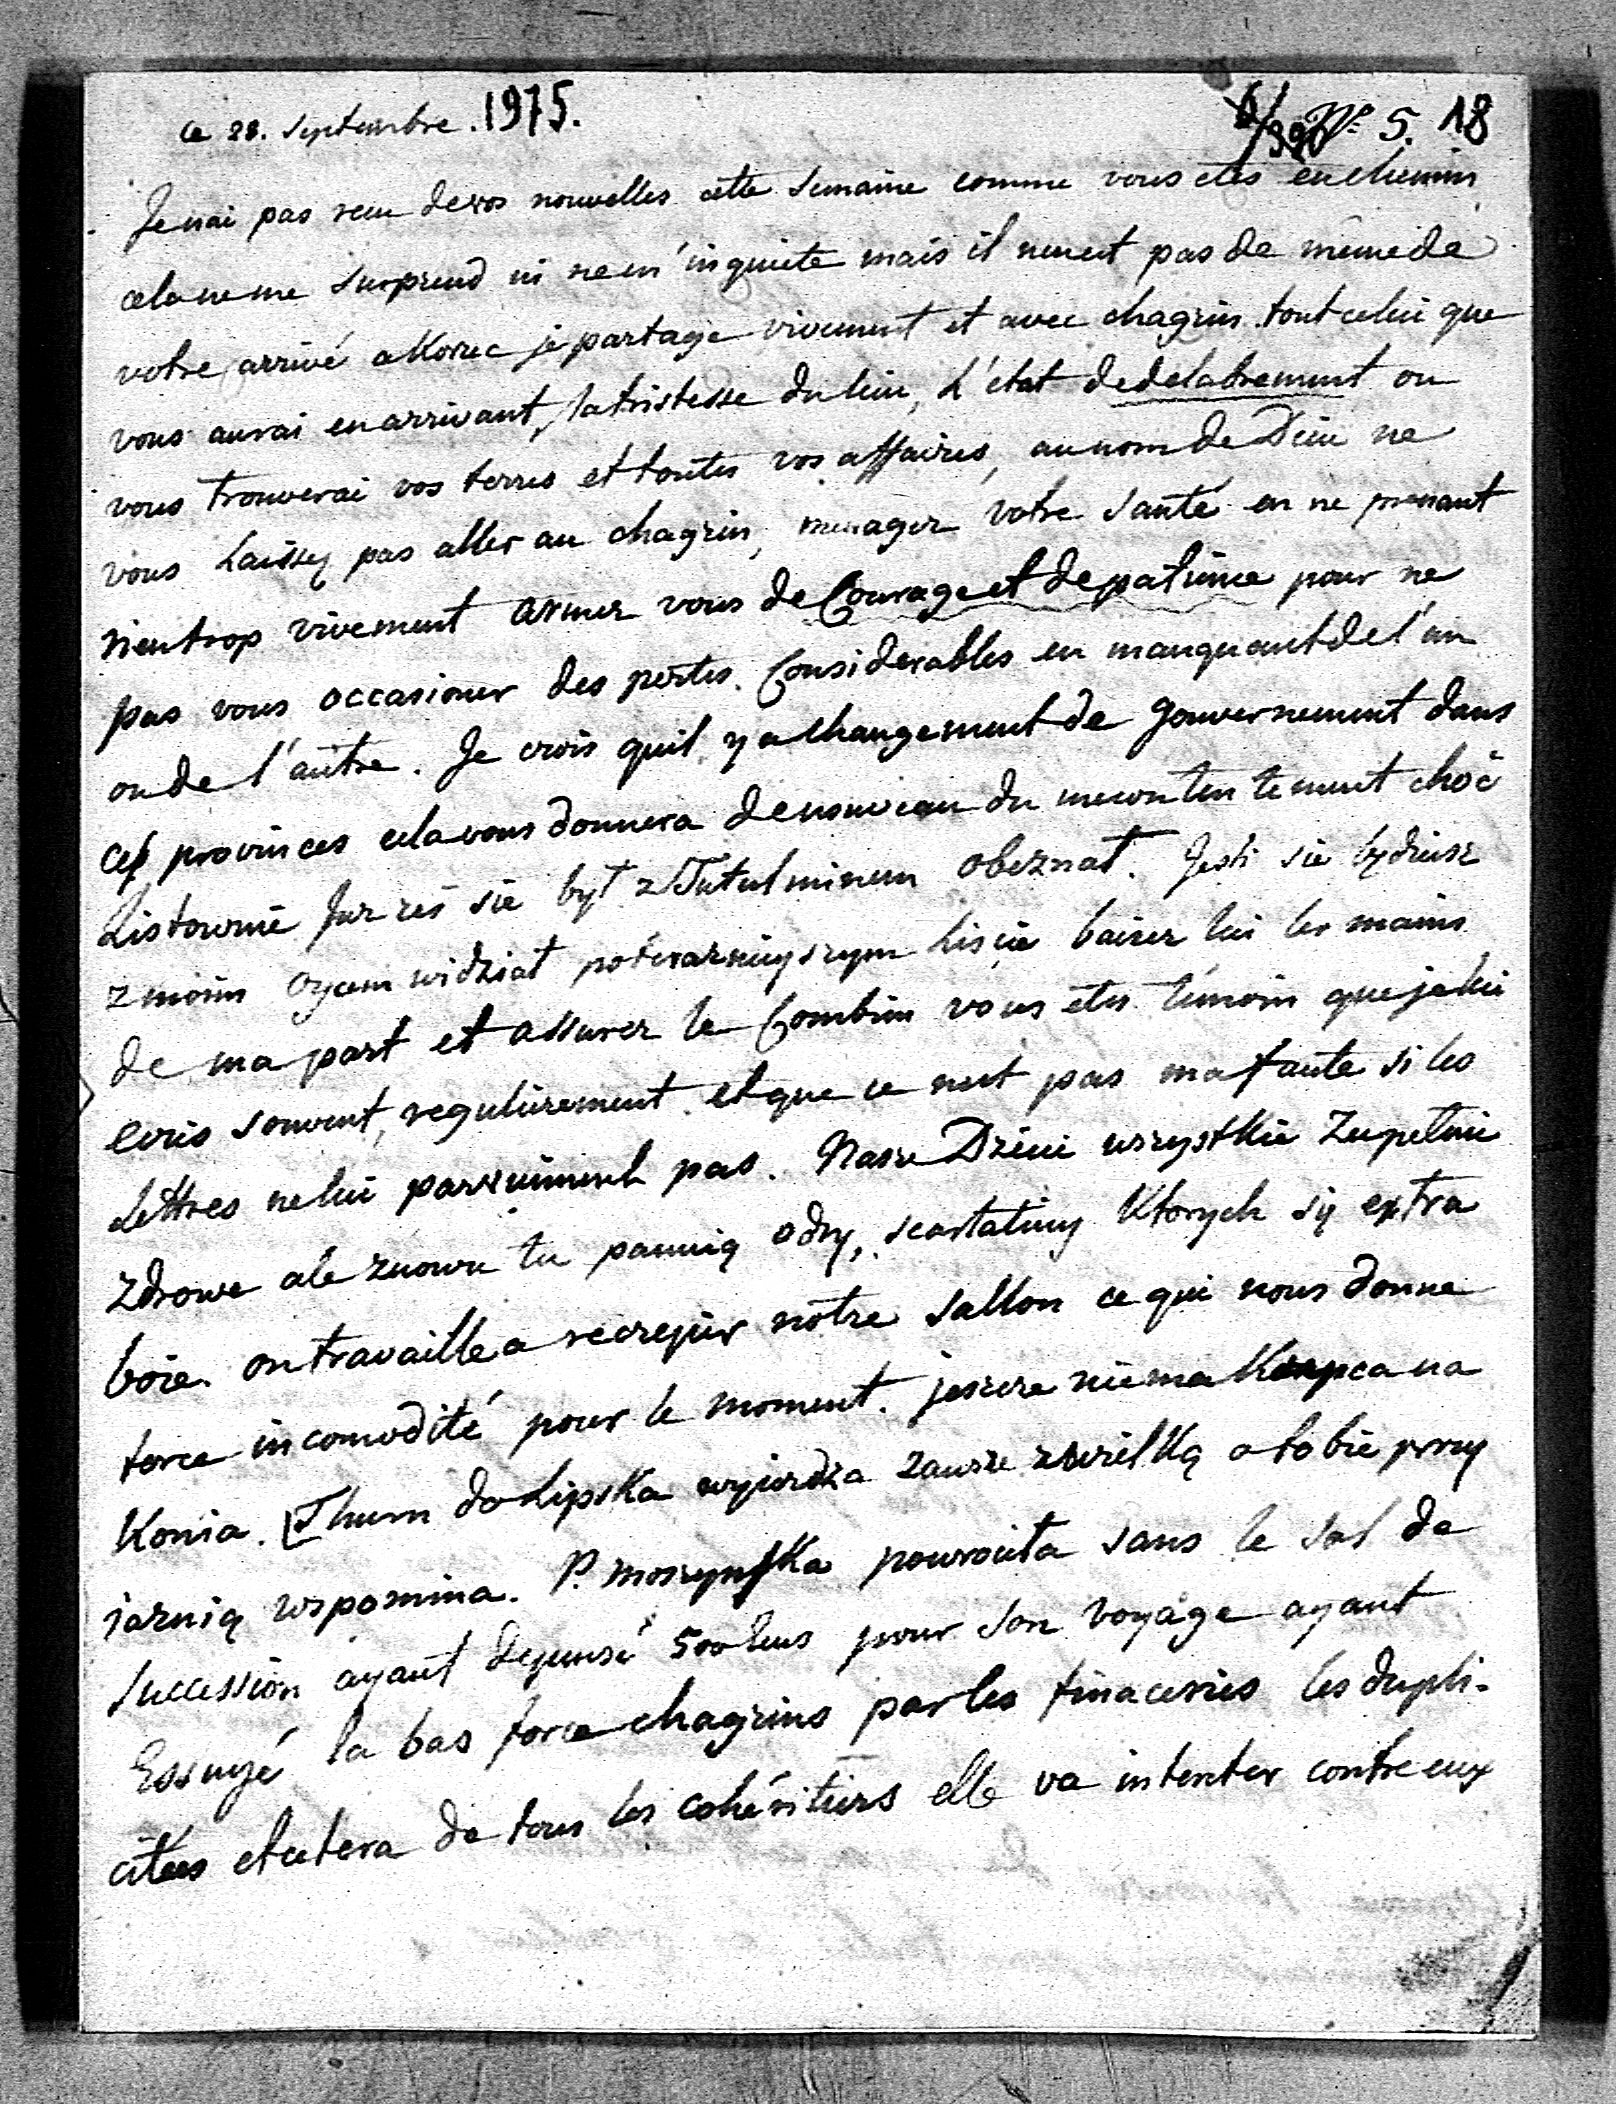 ce 28. Septembre. 1975.
N° 5. 18
Je nai pas recu de vos nouvelles cette semaine comme vous etes en chemin
cela ne me surprend ni ne m'inquiete mais il nen est pas de même de
votre arrivé a Korzec je partage vivement et avec chagrin tout celui que
vous aurai en arrivant, la tristesse du lieu, L'état de delabrement ou
vous trouverai vos terres et toutes vos affaires, au nom de Dieu ne
vous Laissez pas aller au chagrin, menager votre santé en ne prenant
rien trop vivement armer vous de Courage et de patience pour ne
pas vous occasioner des pertes Considerables en manquant de l'un
ou de l'autre. Je crois quil y a changement de gouvernement dans
ces provinces cela vous donnera de nouveau du mecontentement choć
Listownie Jurześ sie był z Tutulminem obeznał. Jesli sie będziesz
z moim oycem widział baiser lui les mains
de ma part et assurer le Combien vous etes témoin que je lui
ecris souvent, regulierement et que ce nest pas ma faute si les
Lettres ne lui parviennent pas. Nasze Dzieci wszystkie zupełnie
zdrowe ale znowu tu panuią odry, scarlatiny Ktorych się extra
boie. on travaille a recrepir notre sallon ce qui nous donne
force incomodité pour le moment. jeszcze niema Kupca na
Konia. Thurn do Lipska wyiezdza zawsze z wielką o tobie przy
iaznią wspomina. P. Moszynska powrociła sans le sol de
succession ayant depensé 500 pour son voyage ayant
Essuyé la bas force chagrins par les finaceries les dupli-
citees etcetera de tous les cohéritiers elle va intenter contre eux